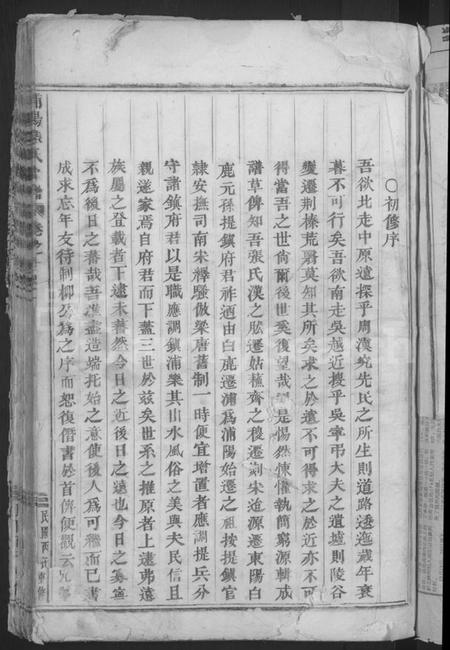 〇初修序
吾欲北走中原遠探乎周漢究先氏之所生則道路逶迤歲年衰
暮不可行矣吾欲南走吳越近授乎吳寧弔大夫之遺墟則陵谷
變遷荆榛荒翳莫知其所矣求之於遠不可得求之於近亦不可
得當吾之世尚爾後世奚復望哉 是惕然悚懼執簡窮源輯成
譜草俾知吾張氏漢之 遷姑蘇齊之 遷 宋道源遷東陽白
鹿元孫提鎮府君祚迺由白鹿遷浦爲浦陽始遷之祖按提鎮官
隸安撫司南宋繹騷倣梁唐舊制一時便宜增置者應調提兵分
守諸鎮府君以是職應調鎮浦樂其山水風俗之美與夫民信且
親遂家焉自府君而下蓋三世於兹矣世系之推原者上遠弗遠
族屬之登載者下逮未蕃然今日之近後日之遠也今日之 寧
不爲後日之蕃哉吾 盡造端托始之意使後人爲可繼而已書
成求忘年友待制柳公爲之序而恕復僭書於首俾便觀云
民國丙 重修